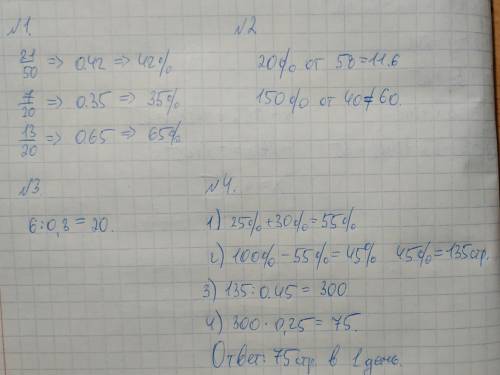 №1.
21/50 => 0.42 => 42%
7/20 => 0.35 => 35%
13/20 => 0.65 => 65%
№2
20% от 58 = 11.6
150% от 40 = 60.
№3
6:0,3 = 20.
№4.
1) 25% + 30% = 55%
2) 100% - 55% = 45% 45% = 135стр.
3) 135 : 0.45 = 300
4) 300 · 0,25 = 75.
Ответ: 75стр. в 1 день.